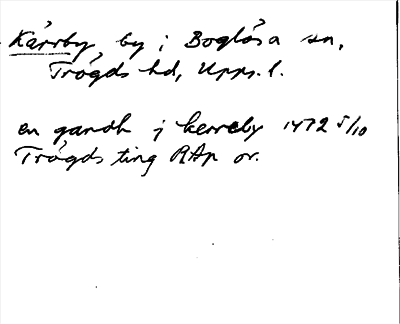 Kärrby, by i Boglösa sn,
Trögds hd, Upps. l.
en gardh j kerreby 1472 5/10
Trögds ting RAp or.